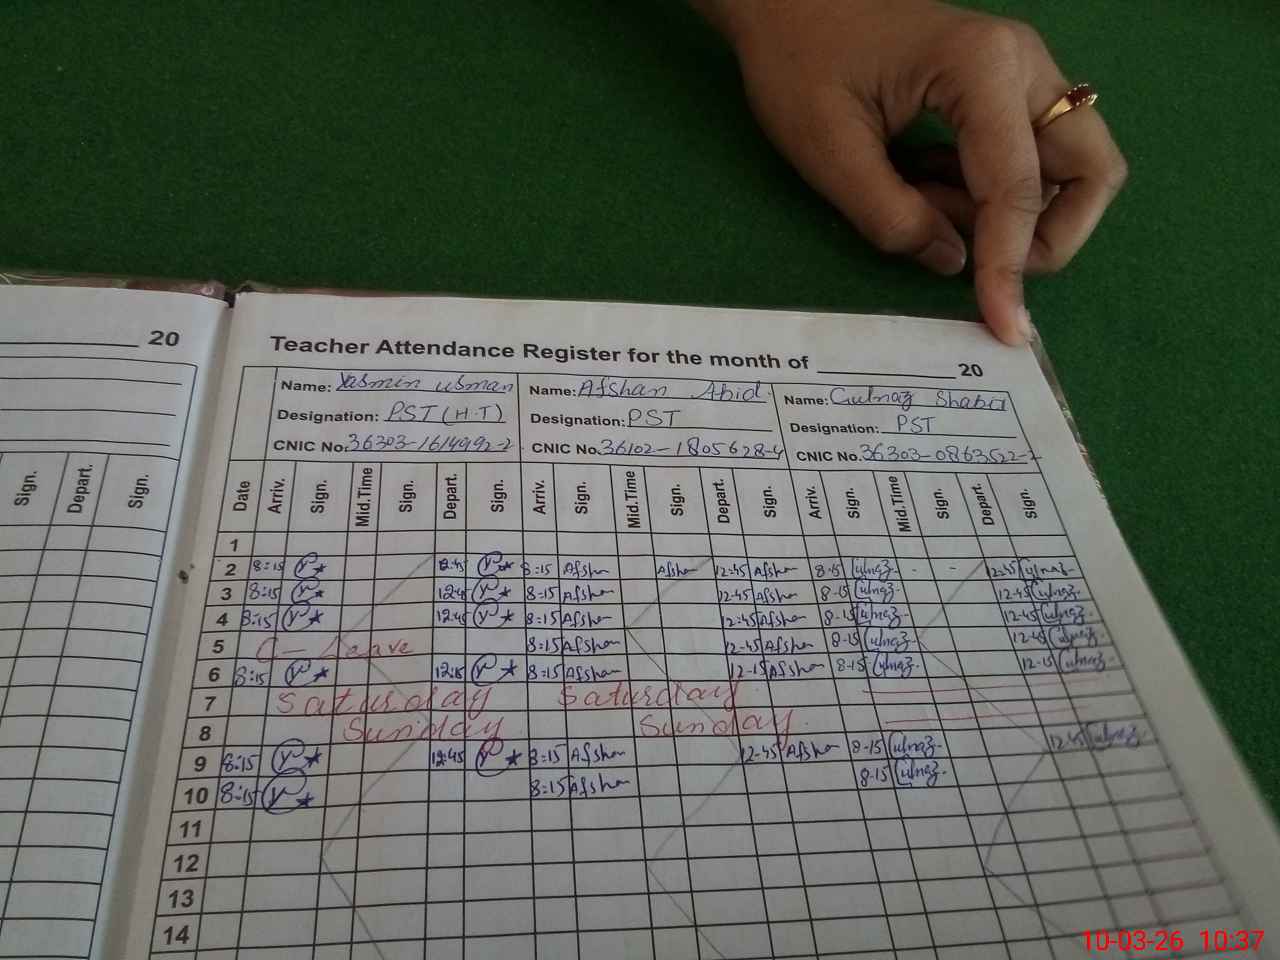 20
Teacher Attendance Register for the month of ____________ 20
Name: Yasmin usman Name: Afshan Abid. Name: Gulnaz Shabir
Designation: PST (H.T) Designation: PST Designation: PST
CNIC No. 36303-1614992-2 CNIC No. 36102-1805628-4 CNIC No. 36303-0863522-2
Sign. Depart. Sign. Date Arriv. Sign. Mid.Time Sign. Depart. Sign. Arriv. Sign. Mid.Time Sign. Depart. Sign. Arriv. Sign. Mid.Time Sign. Depart. Sign.
1
2 8:15 12:45 8:15 Afshan Afshan 12-45 Afshan 8-15 Gulnaz - - 12-45 Gulnaz
3 8:15 12:45 8:15 Afshan 12-45 Afshan 8-15 Gulnaz 12-45 Gulnaz
4 8:15 12:45 8:15 Afshan 12:45 Afshan 8-15 Gulnaz 12-45 Gulnaz
5 C-Leave 8:15 Afshan 12-45 Afshan 8-15 Gulnaz 12-45 Gulnaz
6 8:15 12:15 8:15 Afshan 12-15 Afshan 8-15 Gulnaz 12-15 Gulnaz
7 Saturday Saturday
8 Sunday Sunday
9 8:15 12:45 8:15 Afshan 12-45 Afshan 8-15 Gulnaz 12-45 Gulnaz
10 8:15 8:15 Afshan 8-15 Gulnaz
11
12
13
14
10-03-26 10:37